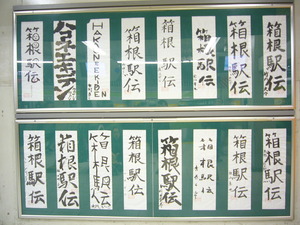 箱根駅伝
箱根駅伝
箱根駅伝
箱根駅伝
箱根駅伝
HAKONEEKIDEN
ハコネエキデン
箱根駅伝
箱根駅伝
箱根駅伝
箱根駅伝
箱根駅伝
箱根駅伝
箱根駅伝
箱根駅伝
箱根駅伝